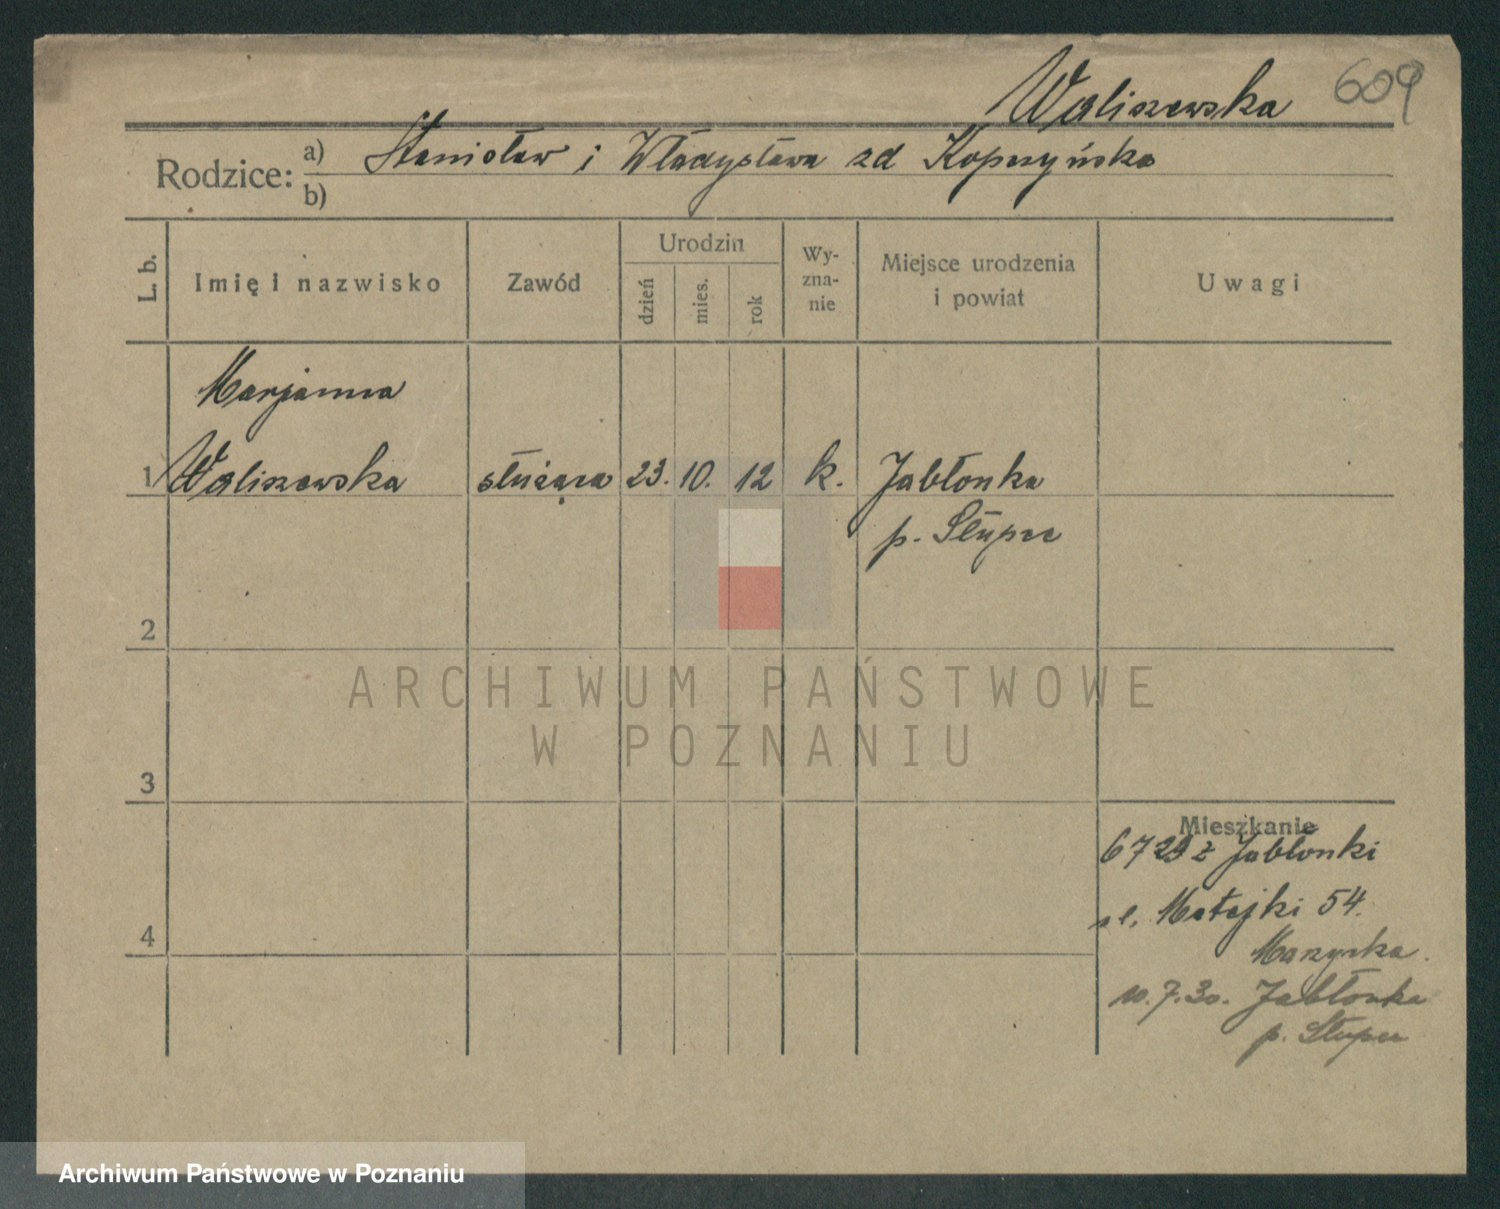 Waliszewska 609
Rodzice: a) Stanisław i Władysława zd Kopczyńska
b)
L. b. Imię i nazwisko Zawód Urodzin dzień mies. rok Wyznanie Miejsce urodzenia i powiat Uwagi
Marjanna
1 Waliszewska służąca 23. 10. 12 k. Jabłonka
p. Słupca
2
ARCHIWUM PAŃSTWOWE
W POZNANIU
3
Mieszkanie
6 7 29 z Jabłonki
ul. Matejki 54.
4
10.7.30. Jabłonka
p. Słupca
Archiwum Państwowe w Poznaniu